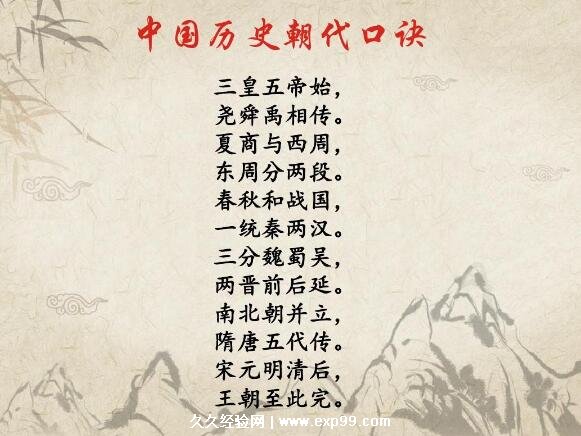 中国历史朝代口诀
三皇五帝始，
尧舜禹相传。
夏商与西周，
东周分两段。
春秋和战国，
一统秦两汉。
三分魏蜀吴，
两晋前后延。
南北朝并立，
隋唐五代传。
宋元明清后，
王朝至此完。
久久经验网 | www.exp99.com